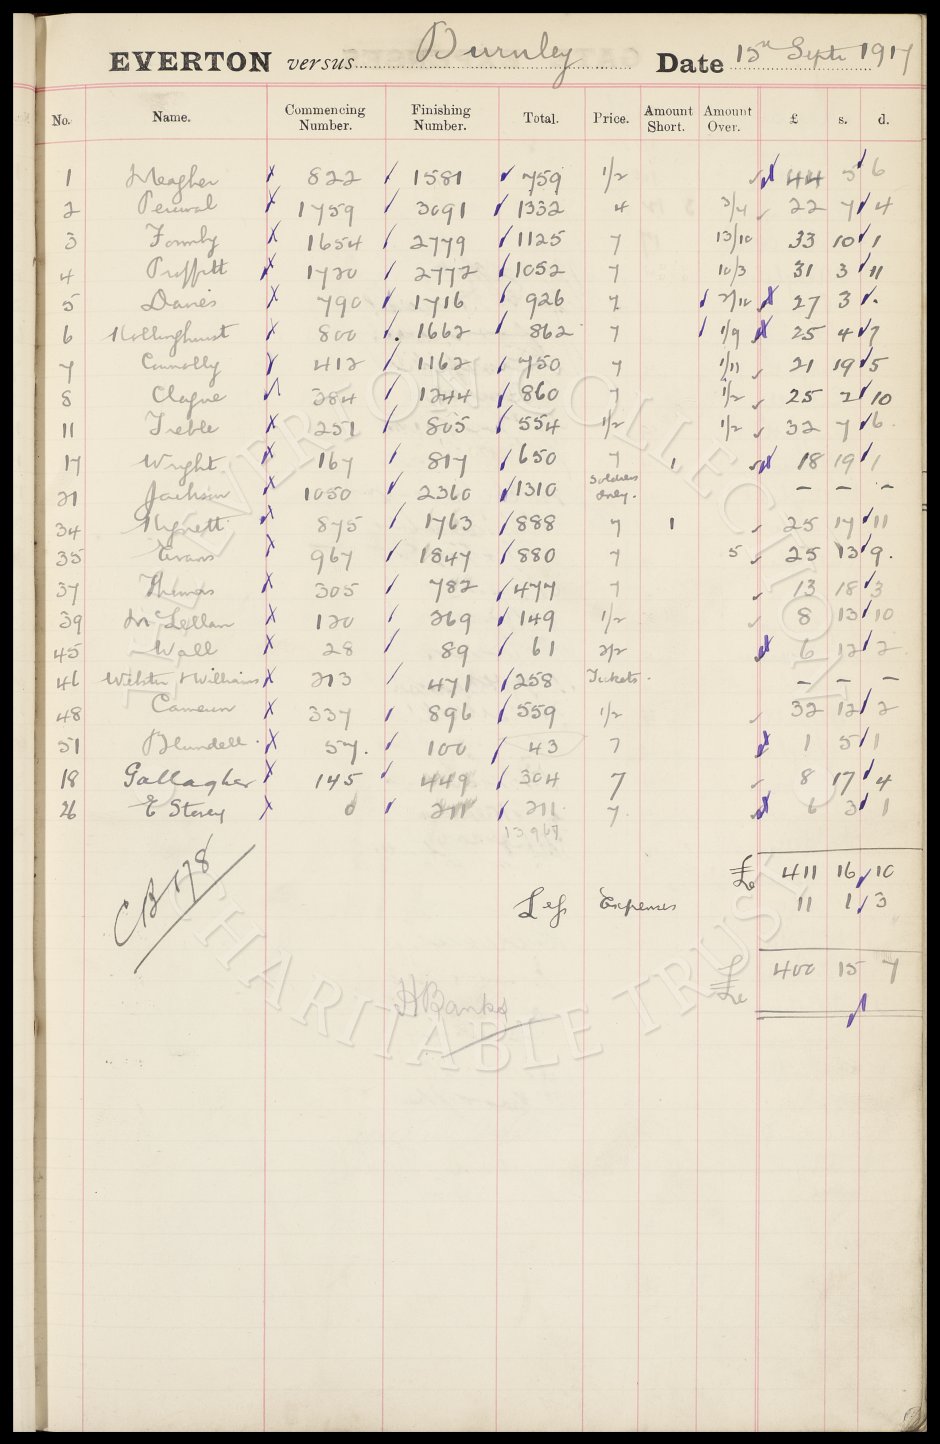 EVERTON versus Burnley Date 15th Septr 1917
No. Name. Commencing Number. Finishing Number. Total. Price. Amount Short. Amount Over. £ s. d.
1 Meagher 822 1581 759 1/2 44 5 6
2 Percival 1759 3091 1332 4 3/4 22 7 4
3 Formby 1654 2779 1125 7 13/10 33 10 1
4 Proffitt 1720 2772 1052 7 10/3 31 3 11
5 Davies 790 1716 926 7 2/10 27 3 .
6 Hollinghurst 800 1662 862 7 1/9 25 4 7
7 Connolly 412 1162 750 7 1/11 21 19 5
8 Clague 384 1244 860 7 1/2 25 2 10
11 Treble 251 805 554 1/2 1/2 32 7 6
17 Wright 167 817 650 7 1 18 19 1
21 Jackson 1050 2360 1310 Soldiers only. - - -
34 Hignett 875 1763 888 7 1 25 17 11
35 Evans 967 1847 880 7 5 25 13 9.
37 Thomas 305 782 477 7 13 18 3
39 McLellan 120 269 149 1/2 8 13 10
45 Wall 28 89 61 2/2 6 12 2
46 Webster & Williams 213 471 258 Tickets. - - -
48 Cameron 337 896 559 1/2 32 12 2
51 Blundell. 57. 100 43 7 1 5 1
18 Gallagher 145 449 304 7 8 17 4
26 E Storey 0 211 211 7 6 3 1
13967
£ 411 16 10
CB 178
Less Expenses 11 1 3
£ 400 15 7
H Banks
EVERTON COLLECTION
CHARITABLE TRUST